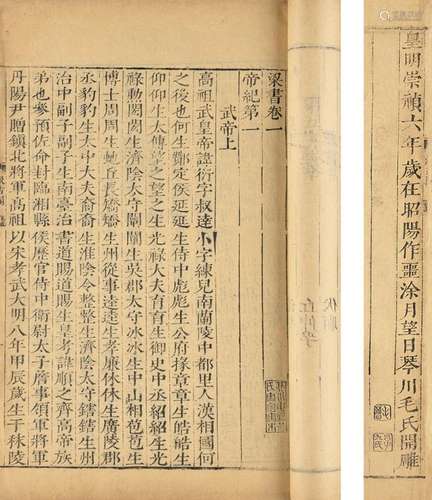 皇明崇禎六年歲在昭陽作噩涂月望日琴川毛氏開雕
梁書卷一
帝紀第一
武帝上
高祖武皇帝諱衍字叔達小字練兒南蘭陵中都里人漢相國何
之後也何生酇定侯延延生侍中彪彪生公府掾章章生皓皓生
仰仰生太傅望之望之生光祿大夫育育生御史中丞紹紹生光
祿勳閎閎生濟陰太守闡闡生吳郡太守冰冰生中山相苞苞生
博士周周生蛇丘長矯矯生州從事逵逵生孝廉休休生廣陵郡
丞豹豹生太中大夫裔裔生淮陰令整整生濟陰太守鎋鎋生州
治中副子副子生南臺治書道賜道賜生皇考諱順之齊高帝族
弟也參預佐命封臨湘縣侯歷官侍中衛尉太子詹事領軍將軍
丹陽尹贈鎮北將軍高祖以宋孝武大明八年甲辰歲生于秣陵